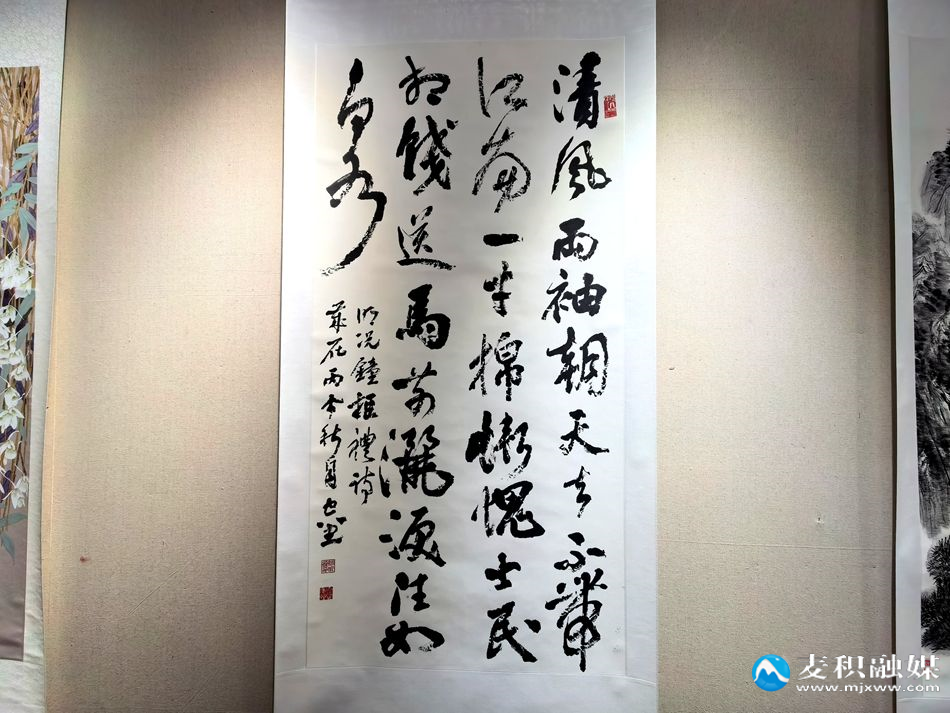 清風兩袖朝天去不帶
江南一寸棉慚愧士民
相餞送馬前灑淚注如
泉
明况鐘拒禮詩
歲在丙申秋月
麦积融媒
www.mjxww.com